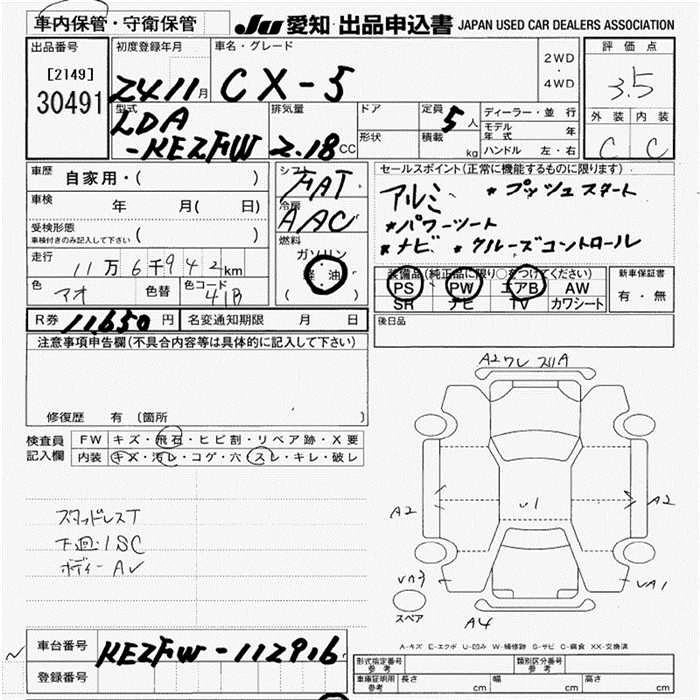 車内保管・守衛保管
JU 愛知 出品申込書 JAPAN USED CAR DEALERS ASSOCIATION
出品番号
[2149]
30491
初度登録年月
24 11月
車名・グレード
CX-5
2WD
・
4WD
評価点
3.5
外装 内装
C C
型式
LDA
-KE2FW
排気量
2.18 CC
ドア
形状
定員
5人
積載
kg
ディーラー・並行
モデル年式 年
ハンドル 左・右
車歴
自家用・( )
車検
年 月( 日)
受検形態
車検付きのみ記入して下さい ( )
走行
11万6千942km
色
アオ
色替
色コード
41B
シフト
FAT
冷房
AAC
燃料
ガソリン
軽油
( )
セールスポイント(正常に機能するものに限ります)
アルミ *プッシュスタート
*パワーシート
*ナビ *クルーズコントロール
装備品(純正品に限り○をつけてください)
PS PW エアB AW
SR ナビ TV カワシート
新車保証書
有・無
後日品
R券 11,650円
名変通知期限 月 日
注意事項申告欄(不具合内容等は具体的に記入して下さい)
修復歴 有 〔箇所 〕
検査員記入欄
FW キズ・飛石・ヒビ割・リペア跡・X要
内装 キズ・汚レ・コゲ・穴・スレ・キレ・破レ
スタッドレスT
下廻.1SC
ボディーAU
A2ワレ スリA
A2
U1
A2
UA1
スペア
A4
A-キズ E-エクボ U-凹み W-補修跡 S-サビ C-腐食 XX-交換済
車台番号 KE2FW-112916
登録番号
形式指定番号 参考
類別区分番号 参考
車庫証明用 参考 長さ cm 幅 cm 高さ cm